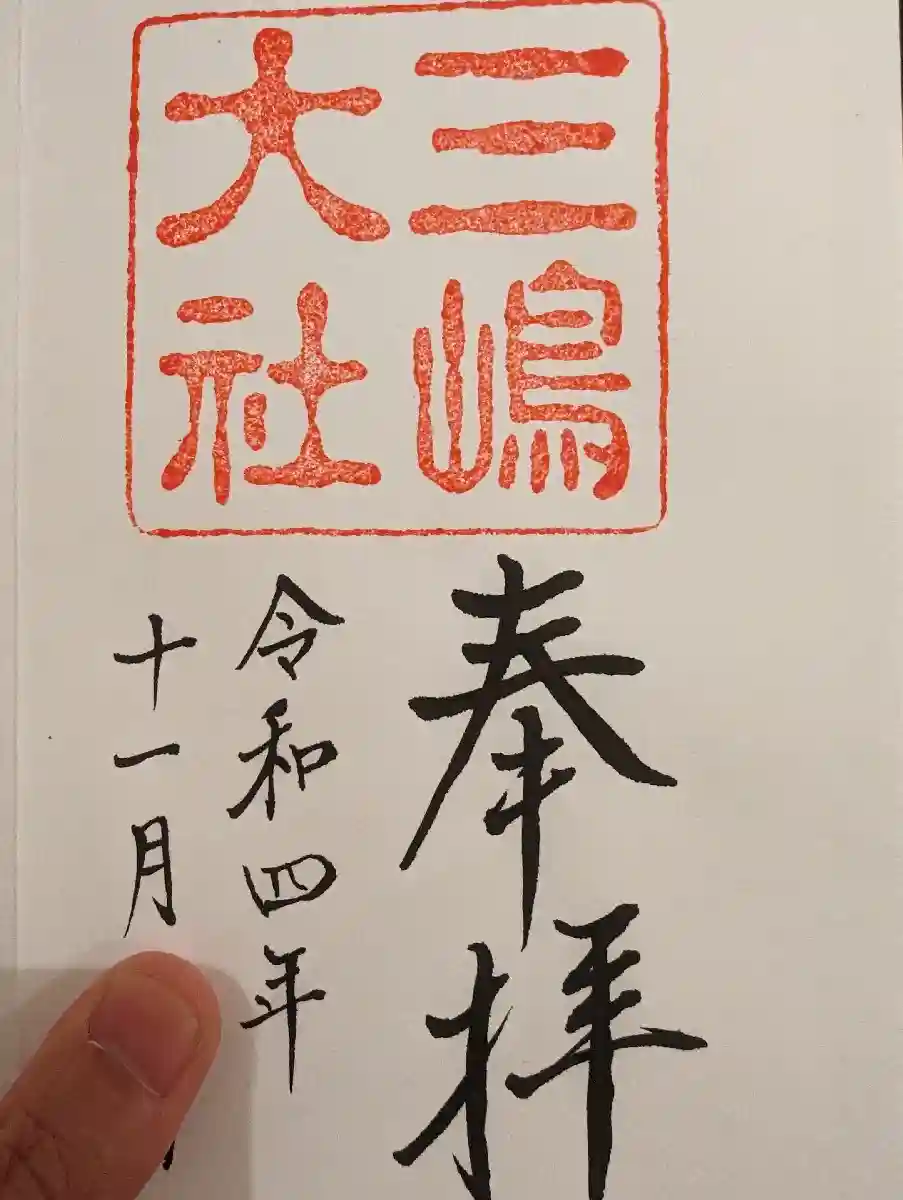 三嶋
大社
奉拝
令和四年
十一月